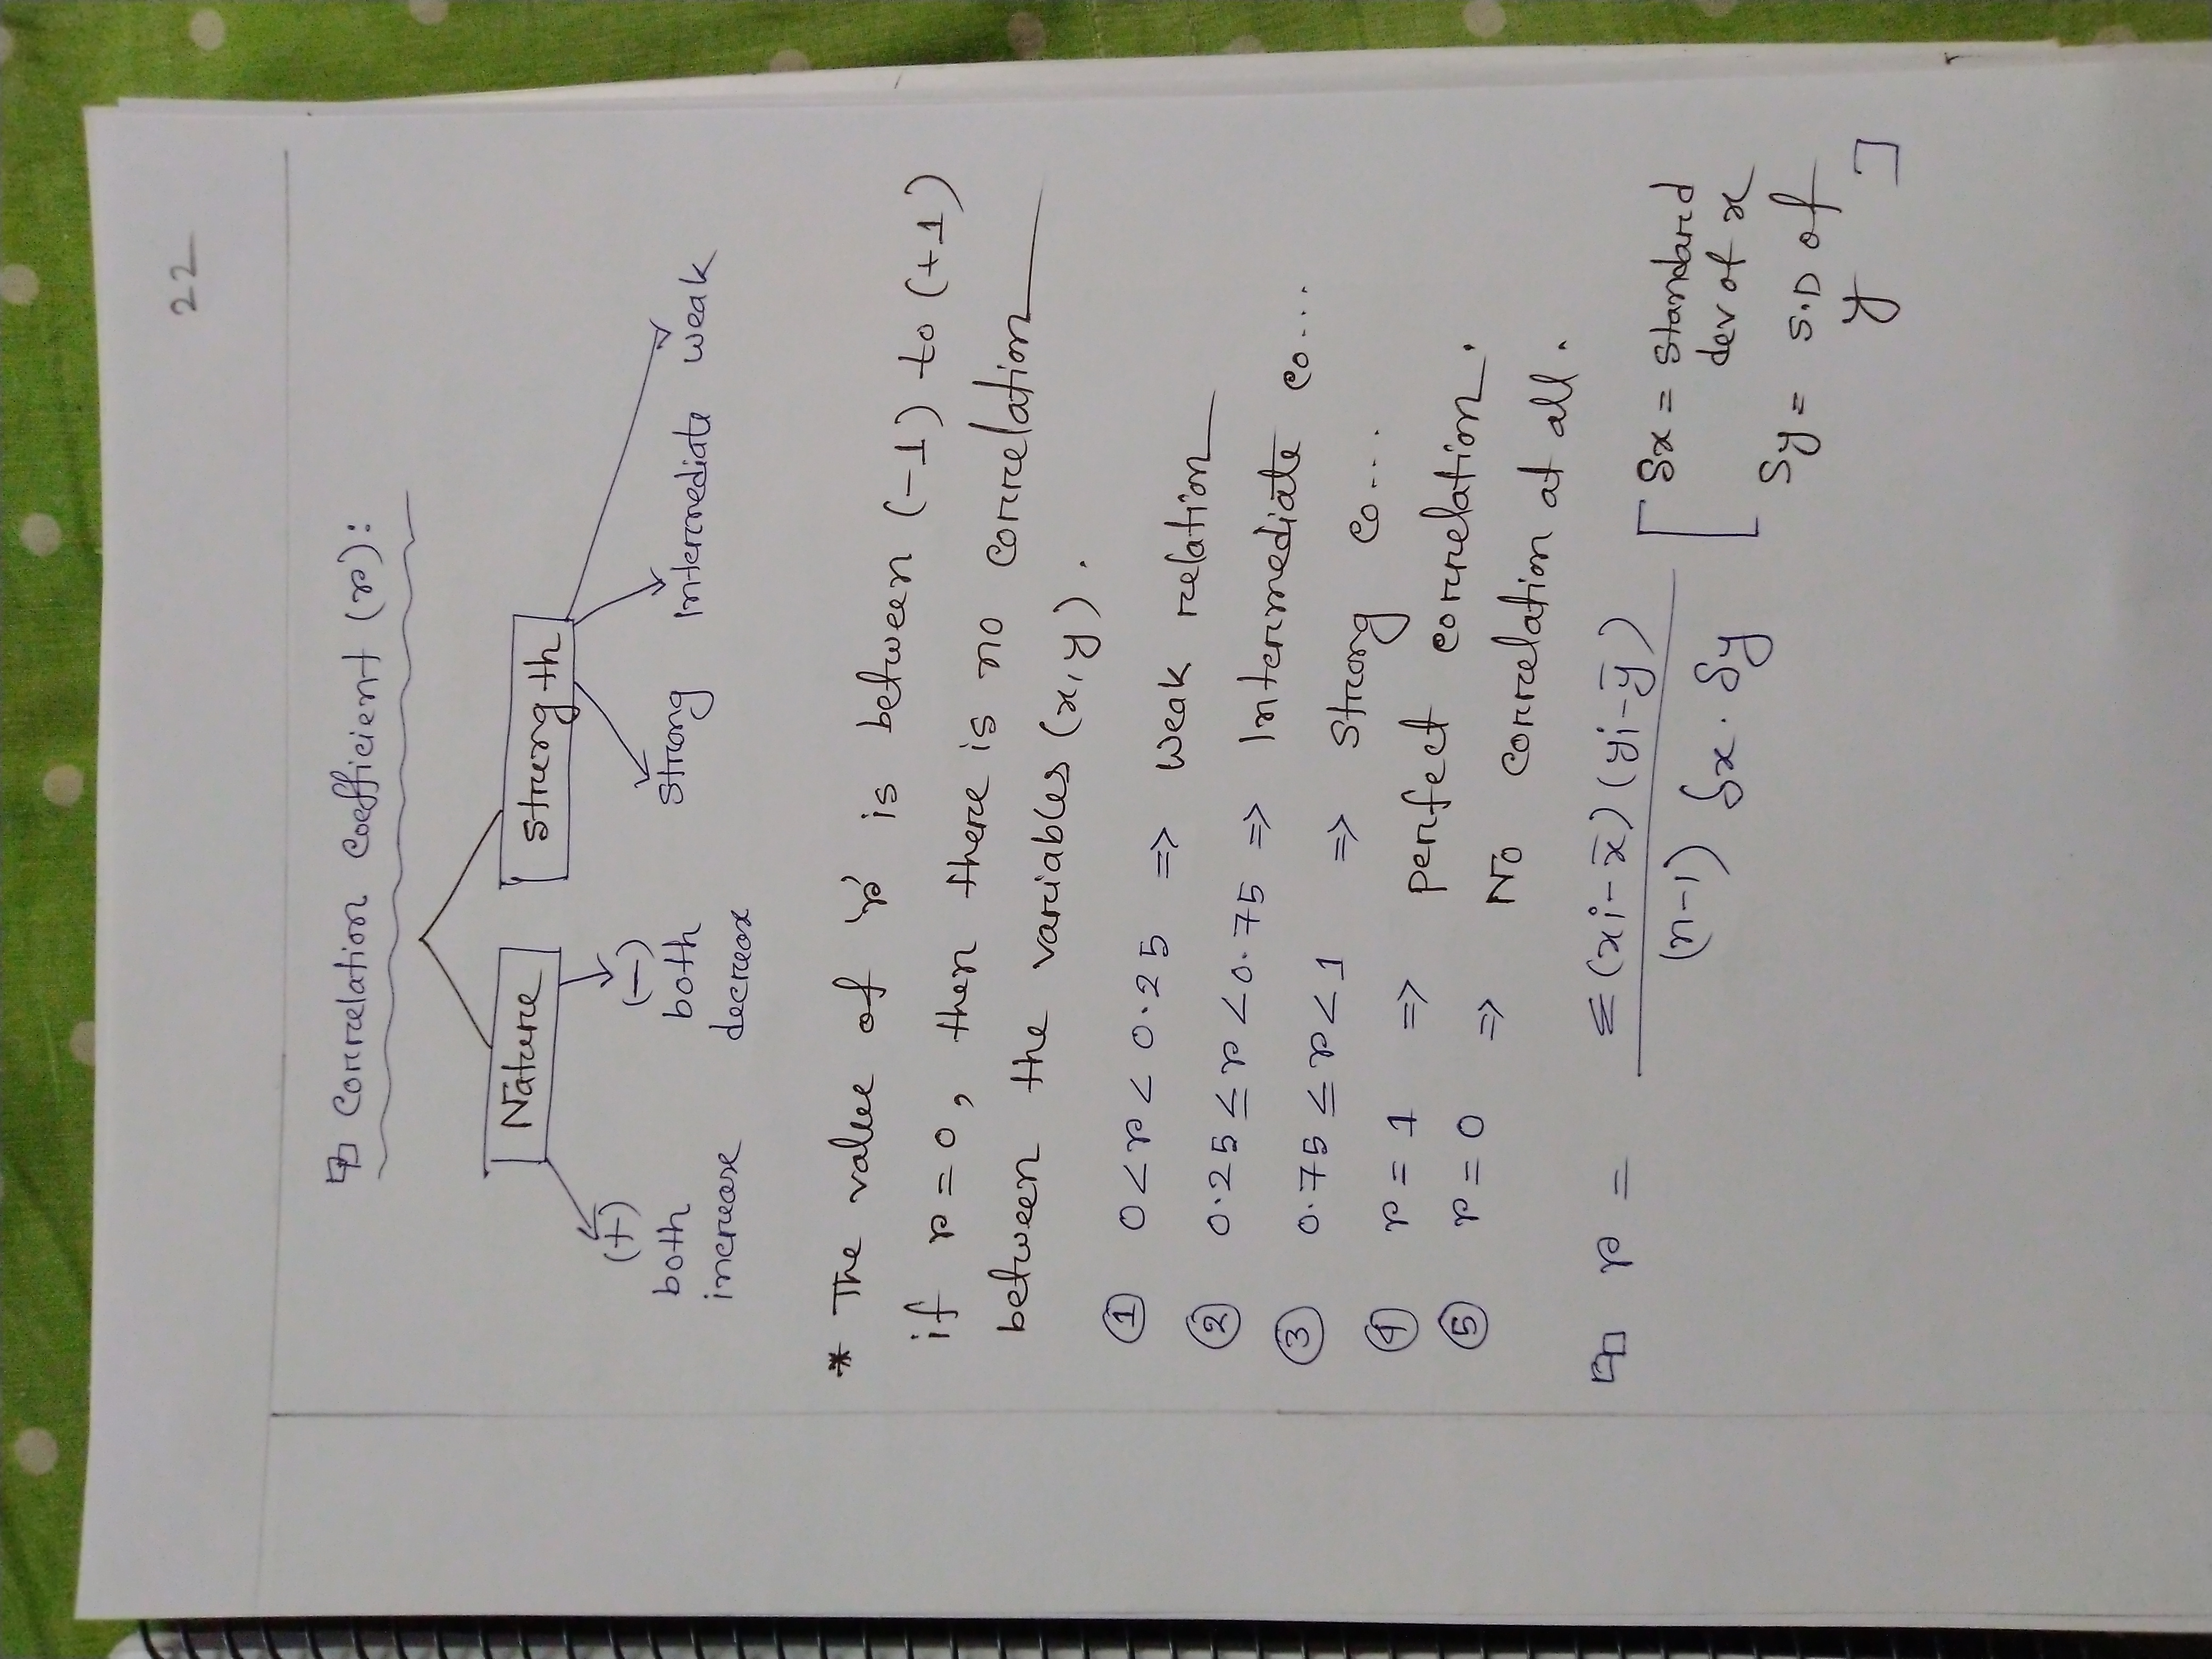 22
Correlation Coefficient (r):
Nature Strength
(+) (-)
both both strong intermediate weak
increase decrease
* The value of 'r' is between (-1) to (+1)
if r = 0, then there is no correlation
between the variables (x, y).
① 0 < r < 0.25 ⇒ Weak relation
② 0.25 ≤ r < 0.75 ⇒ Intermediate co...
③ 0.75 ≤ r < 1 ⇒ Strong co...
④ r = 1 ⇒ perfect correlation.
⑤ r = 0 ⇒ No correlation at all.
r = Σ(xi - x̄)(yi - ȳ)
(n-1) Sx . Sy
[ Sx = standard
dev of x
Sy = S.D of
y ]